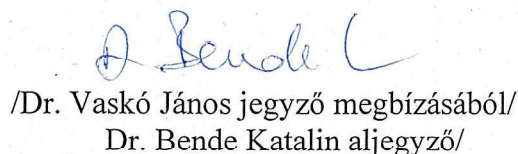 /Dr. Vaskó János jegyző megbízásából/
Dr. Bende Katalin aljegyző/